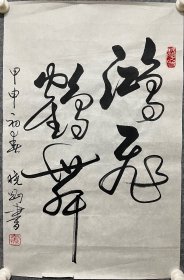 鸿飞
鹤舞
甲申初春 晓
书